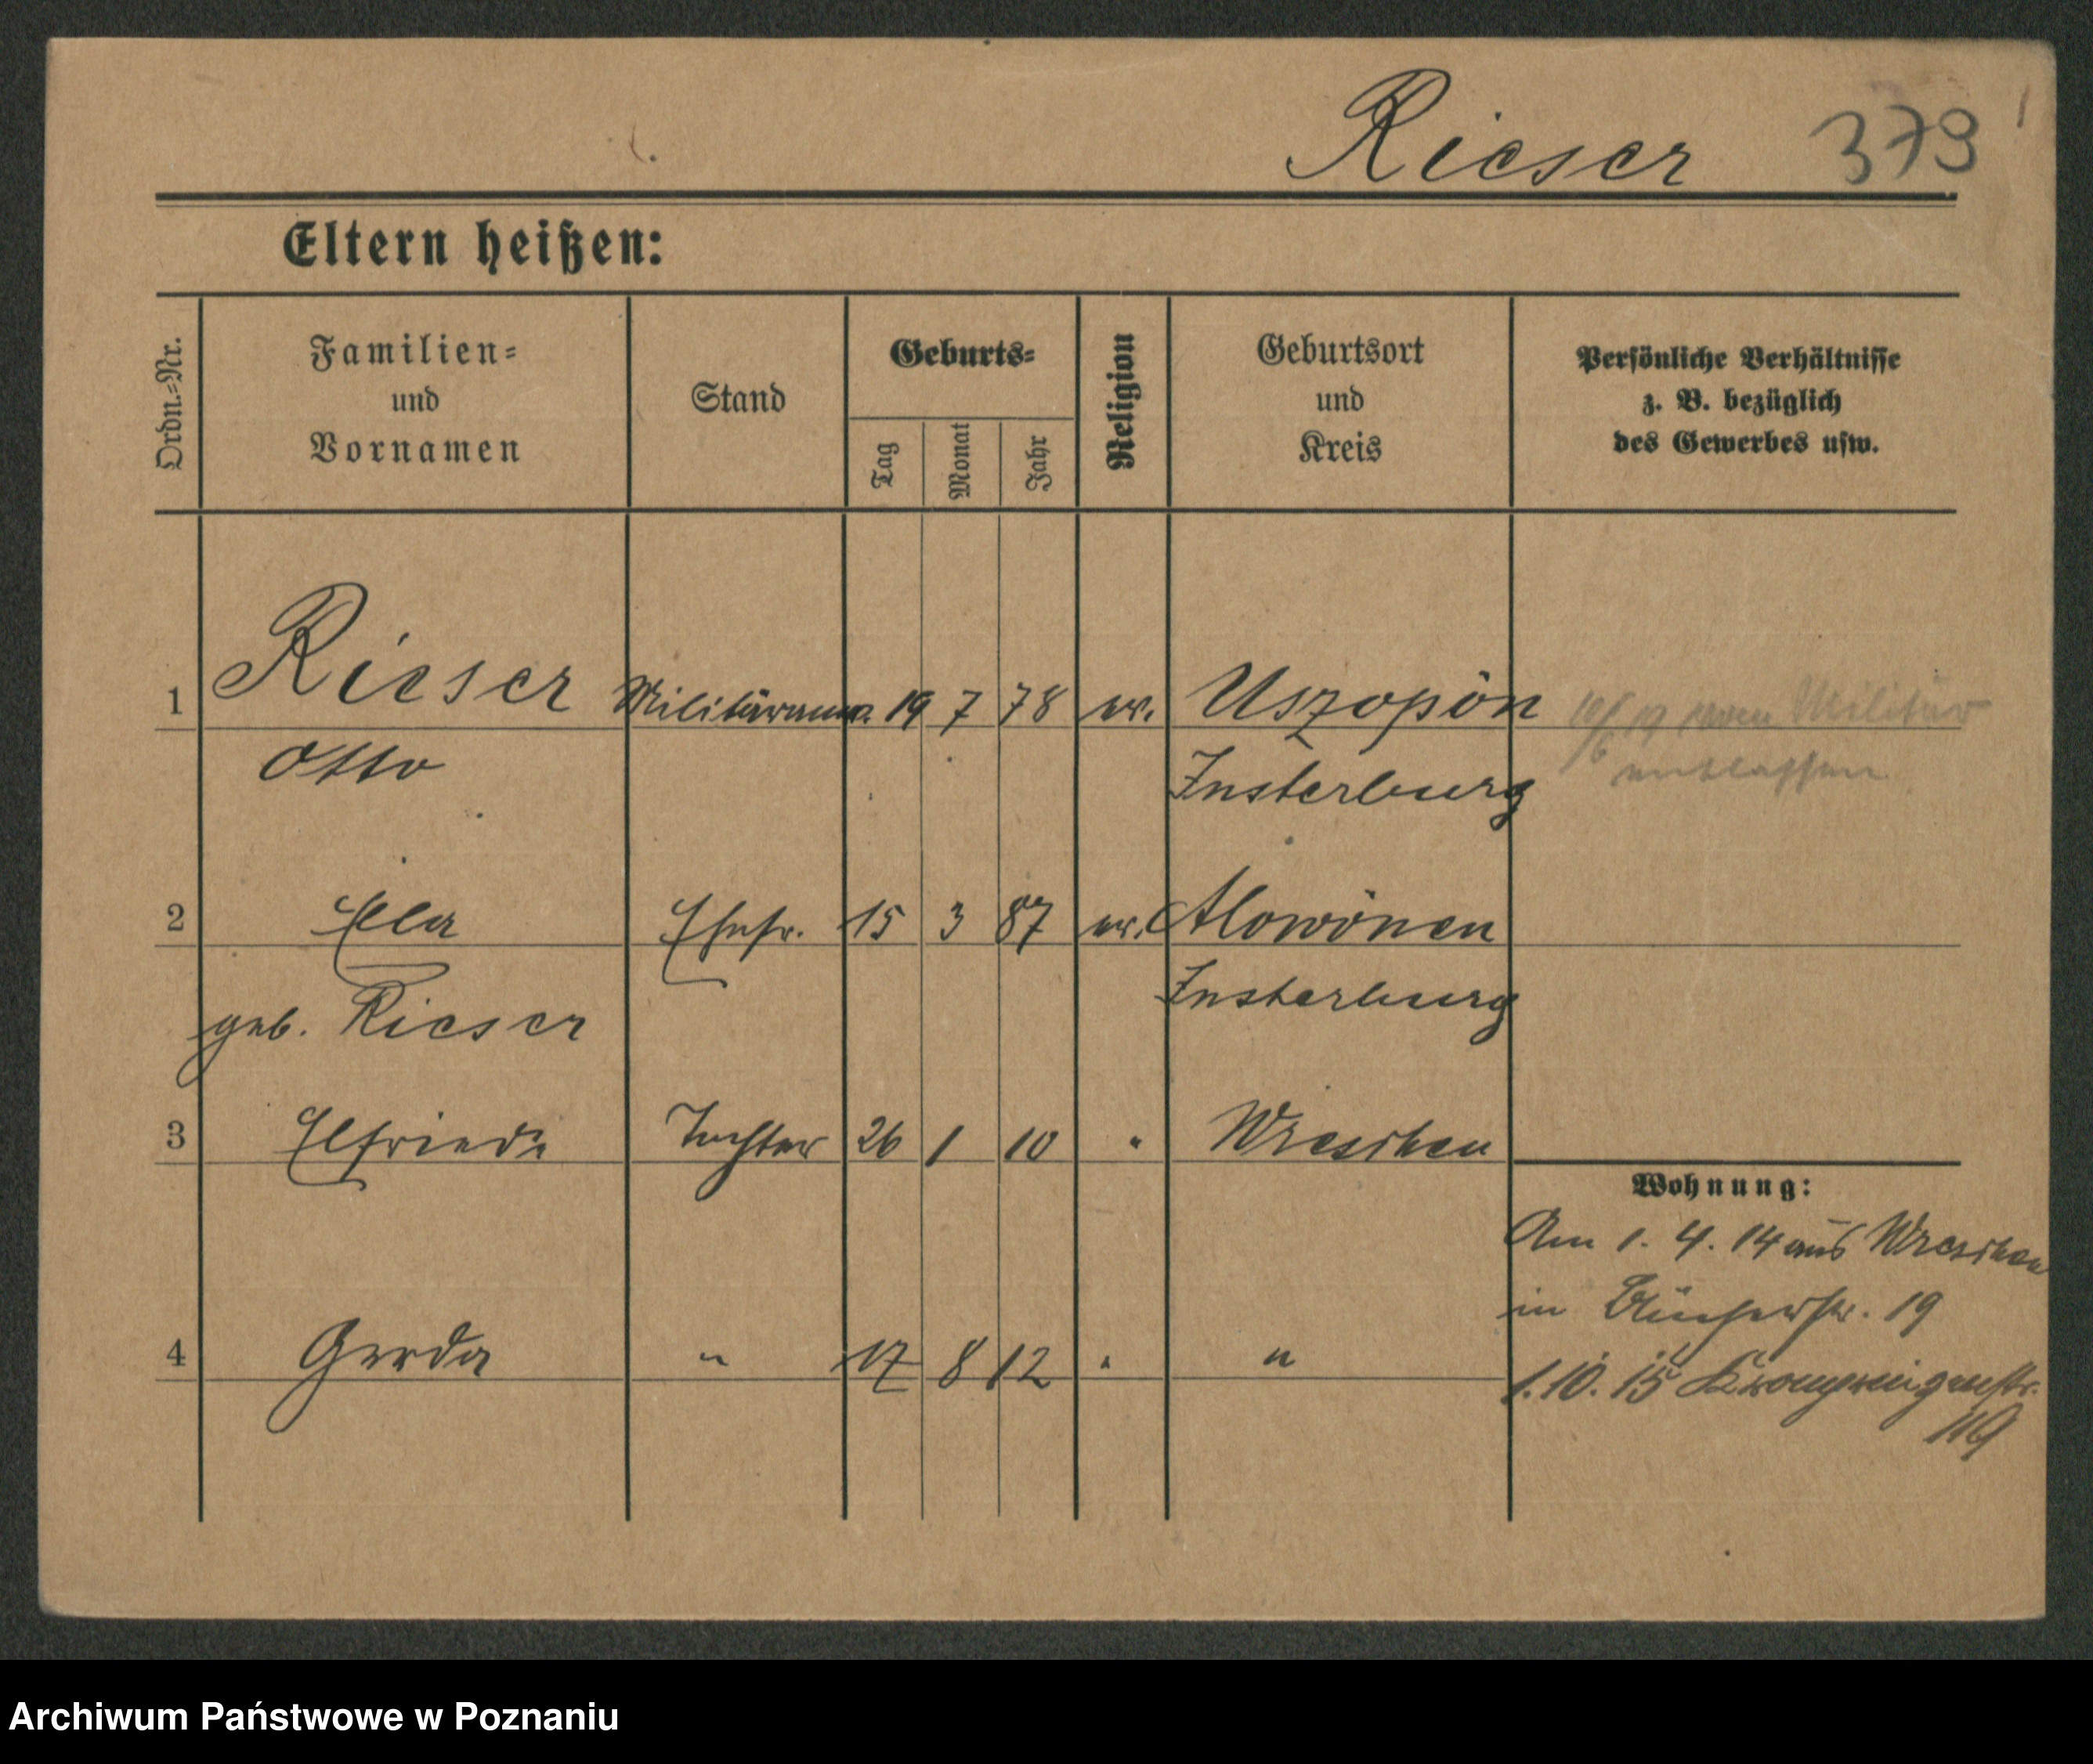 Rieser 379
Eltern heißen:
Ordn.-Nr.
Familien-
und
Vornamen
Stand
Geburts-
Tag
Monat
Jahr
Religion
Geburtsort
und
Kreis
Persönliche Verhältnisse
z. B. bezüglich
des Gewerbes usw.
1 Rieser Militäranw. 19 7 78 ev. Uszopön
Otto Insterburg
vom Militär
entlassen
2 Ella Ehefr. 15 3 87 ev. Alowönen
geb. Rieser Insterburg
3 Elfriede Tochter 26 1 10 " Wreschen
4 Gerda " 17 8 12 " "
Wohnung:
Am 1. 4. 14 aus Wreschen
in Blücherstr. 19
1. 10. 15 Kronprinzenstr.
119
Archiwum Państwowe w Poznaniu